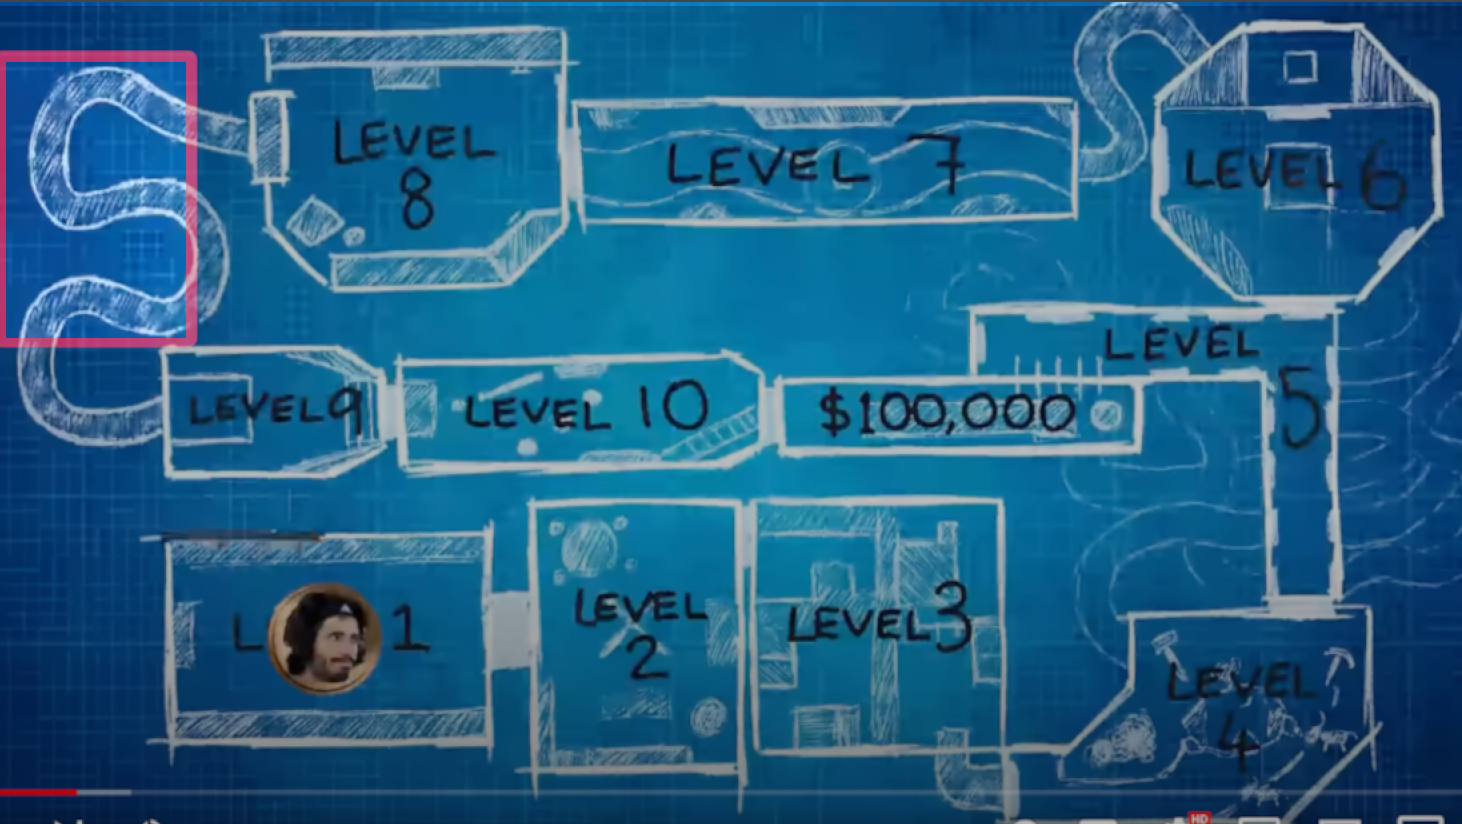 LEVEL
8
LEVEL 7
LEVEL 6
LEVEL
5
LEVEL 9
LEVEL 10
$100,000
L 1
LEVEL
2
LEVEL 3
LEVEL
4
HD